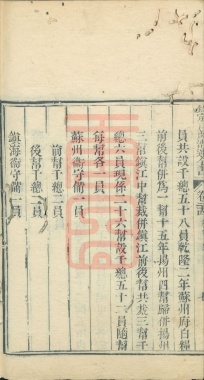 員共設千總五十八員乾隆二年蘇州府白糧
前後幫併為一幫十五年揚州四幫歸併揚州
三幫鎮江中幫裁併鎮江前後幫共裁三幫千
總六員現係二十六幫設千總五十二員隨幫
每幫各一員
蘇州衞守備一員
前幫千總二員
後幫千總二員
鎮海衞守備一員